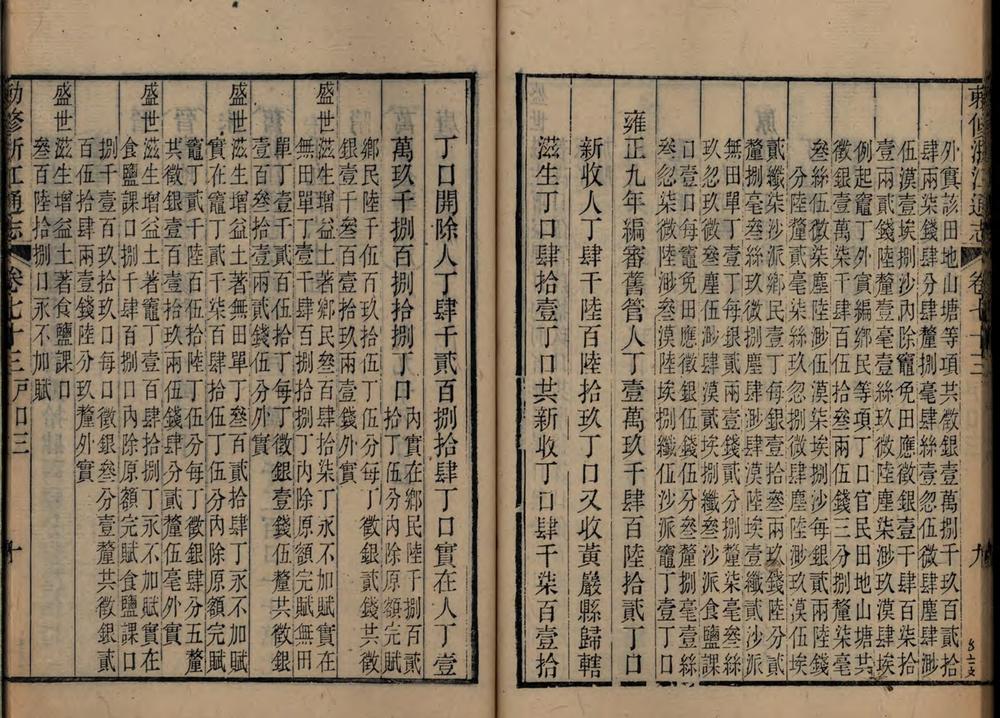 敕修浙江通志 卷七十三 九
外實該田地山塘等項共徵銀壹萬捌千玖百貳拾
肆兩柒錢肆分肆釐捌毫肆絲壹忽伍微肆塵肆渺
伍漠壹埃捌沙內除竈免田應徵銀壹千肆百柒拾
壹兩貳錢陸釐壹毫壹絲玖微陸塵柒渺玖漠肆埃
例起竈丁外實編鄉民等項丁口官民田地山塘共
徵銀壹萬柒千肆百伍拾叁兩伍錢三分捌釐柒毫
叁絲伍微柒塵陸渺伍漠柒埃捌沙每銀貳兩陸錢
分陸釐貳毫柒絲玖忽捌微肆塵陸渺玖漠伍埃
貳纖柒沙派鄉民壹丁每銀壹拾叁兩玖錢陸分貳
釐捌毫叁絲玖微捌塵肆渺肆漠陸埃壹纖貳沙派
無田單丁壹丁每銀貳兩壹錢貳分捌釐柒毫叁絲
玖忽玖微叁塵伍渺肆漠貳埃捌纖叁沙派食鹽課
口壹口每竈免田應徵銀伍錢伍分叁釐捌毫壹絲
叁忽柒微陸渺叁漠陸埃捌纖伍沙派竈丁壹丁
雍正九年編審舊管人丁壹萬玖千肆百陸拾貳丁口
新收人丁肆千陸百陸拾玖丁口又收黃巖縣歸轄
滋生丁口肆拾壹丁口共新收丁口肆千柒百壹拾
丁口開除人丁肆千貳百捌拾肆丁口實在人丁壹
萬玖千捌百捌拾捌丁口
內實在鄉民陸千捌百貳
拾丁伍分內除原額完賦
鄉民陸千伍百玖拾丁伍分每丁徵銀貳錢共徵
銀壹千叁百壹拾玖兩壹錢外實
盛世滋生增益土著鄉民叁百肆拾柒丁永不加賦實在
無田單丁壹千肆百捌拾丁內除原額完賦無田
單丁壹千貳百伍拾丁每丁徵銀壹錢伍釐共徵銀
壹百叁拾壹兩貳錢伍分外實
盛世滋生增益土著無田單丁叁百貳拾肆丁永不加賦
實在竈丁貳千柒百肆拾伍丁伍分內除原額完賦
竈丁貳千陸百伍拾陸丁伍分每丁徵銀肆分五釐
共徵銀壹百壹拾玖兩伍錢肆分貳釐伍毫外實
盛世滋生增益土著竈丁壹百肆拾捌丁永不加賦實在
食鹽課口捌千肆百捌口內除原額完賦食鹽課口
捌千壹百玖拾玖口每口徵銀叁分壹釐共徵銀貳
百伍拾肆兩壹錢陸分玖釐外實
盛世滋生增益土著食鹽課口
叁百陸拾捌口永不加賦
敕修浙江通志 卷七十三 戸口三 十